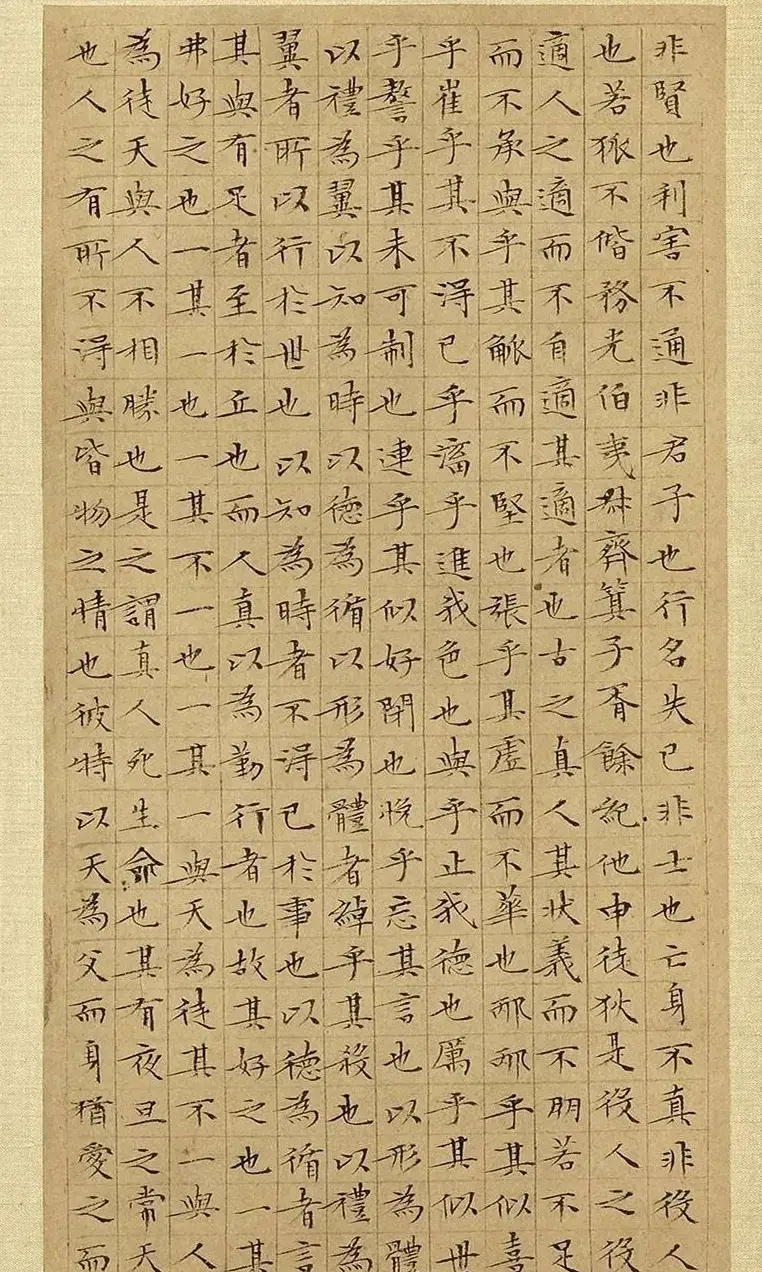 非賢也利害不通非君子也行名失己非士也亡身不真非役人
也若狐不偕務光伯夷叔齊箕子胥餘紀他申徒狄是役人之役
適人之適而不自適其適者也古之真人其狀義而不朋若不足
而不承與乎其觚而不堅也張乎其虛而不華也邴邴乎其似喜
乎崔乎其不得已乎滀乎進我色也與乎止我德也厲乎其似世
乎謷乎其未可制也連乎其似好閉也悅乎忘其言也以形為體
以禮為翼以知為時以德為循以形為體者綽乎其殺也以禮為
翼者所以行於世也以知為時者不得已於事也以德為循者言
其與有足者至於丘也而人真以為勤行者也故其好之也一其
弗好之也一其一也一其不一也一其一與天為徒其不一與人
為徒天與人不相勝也是之謂真人死生命也其有夜旦之常天
也人之有所不得與皆物之情也彼特以天為父而身猶愛之而